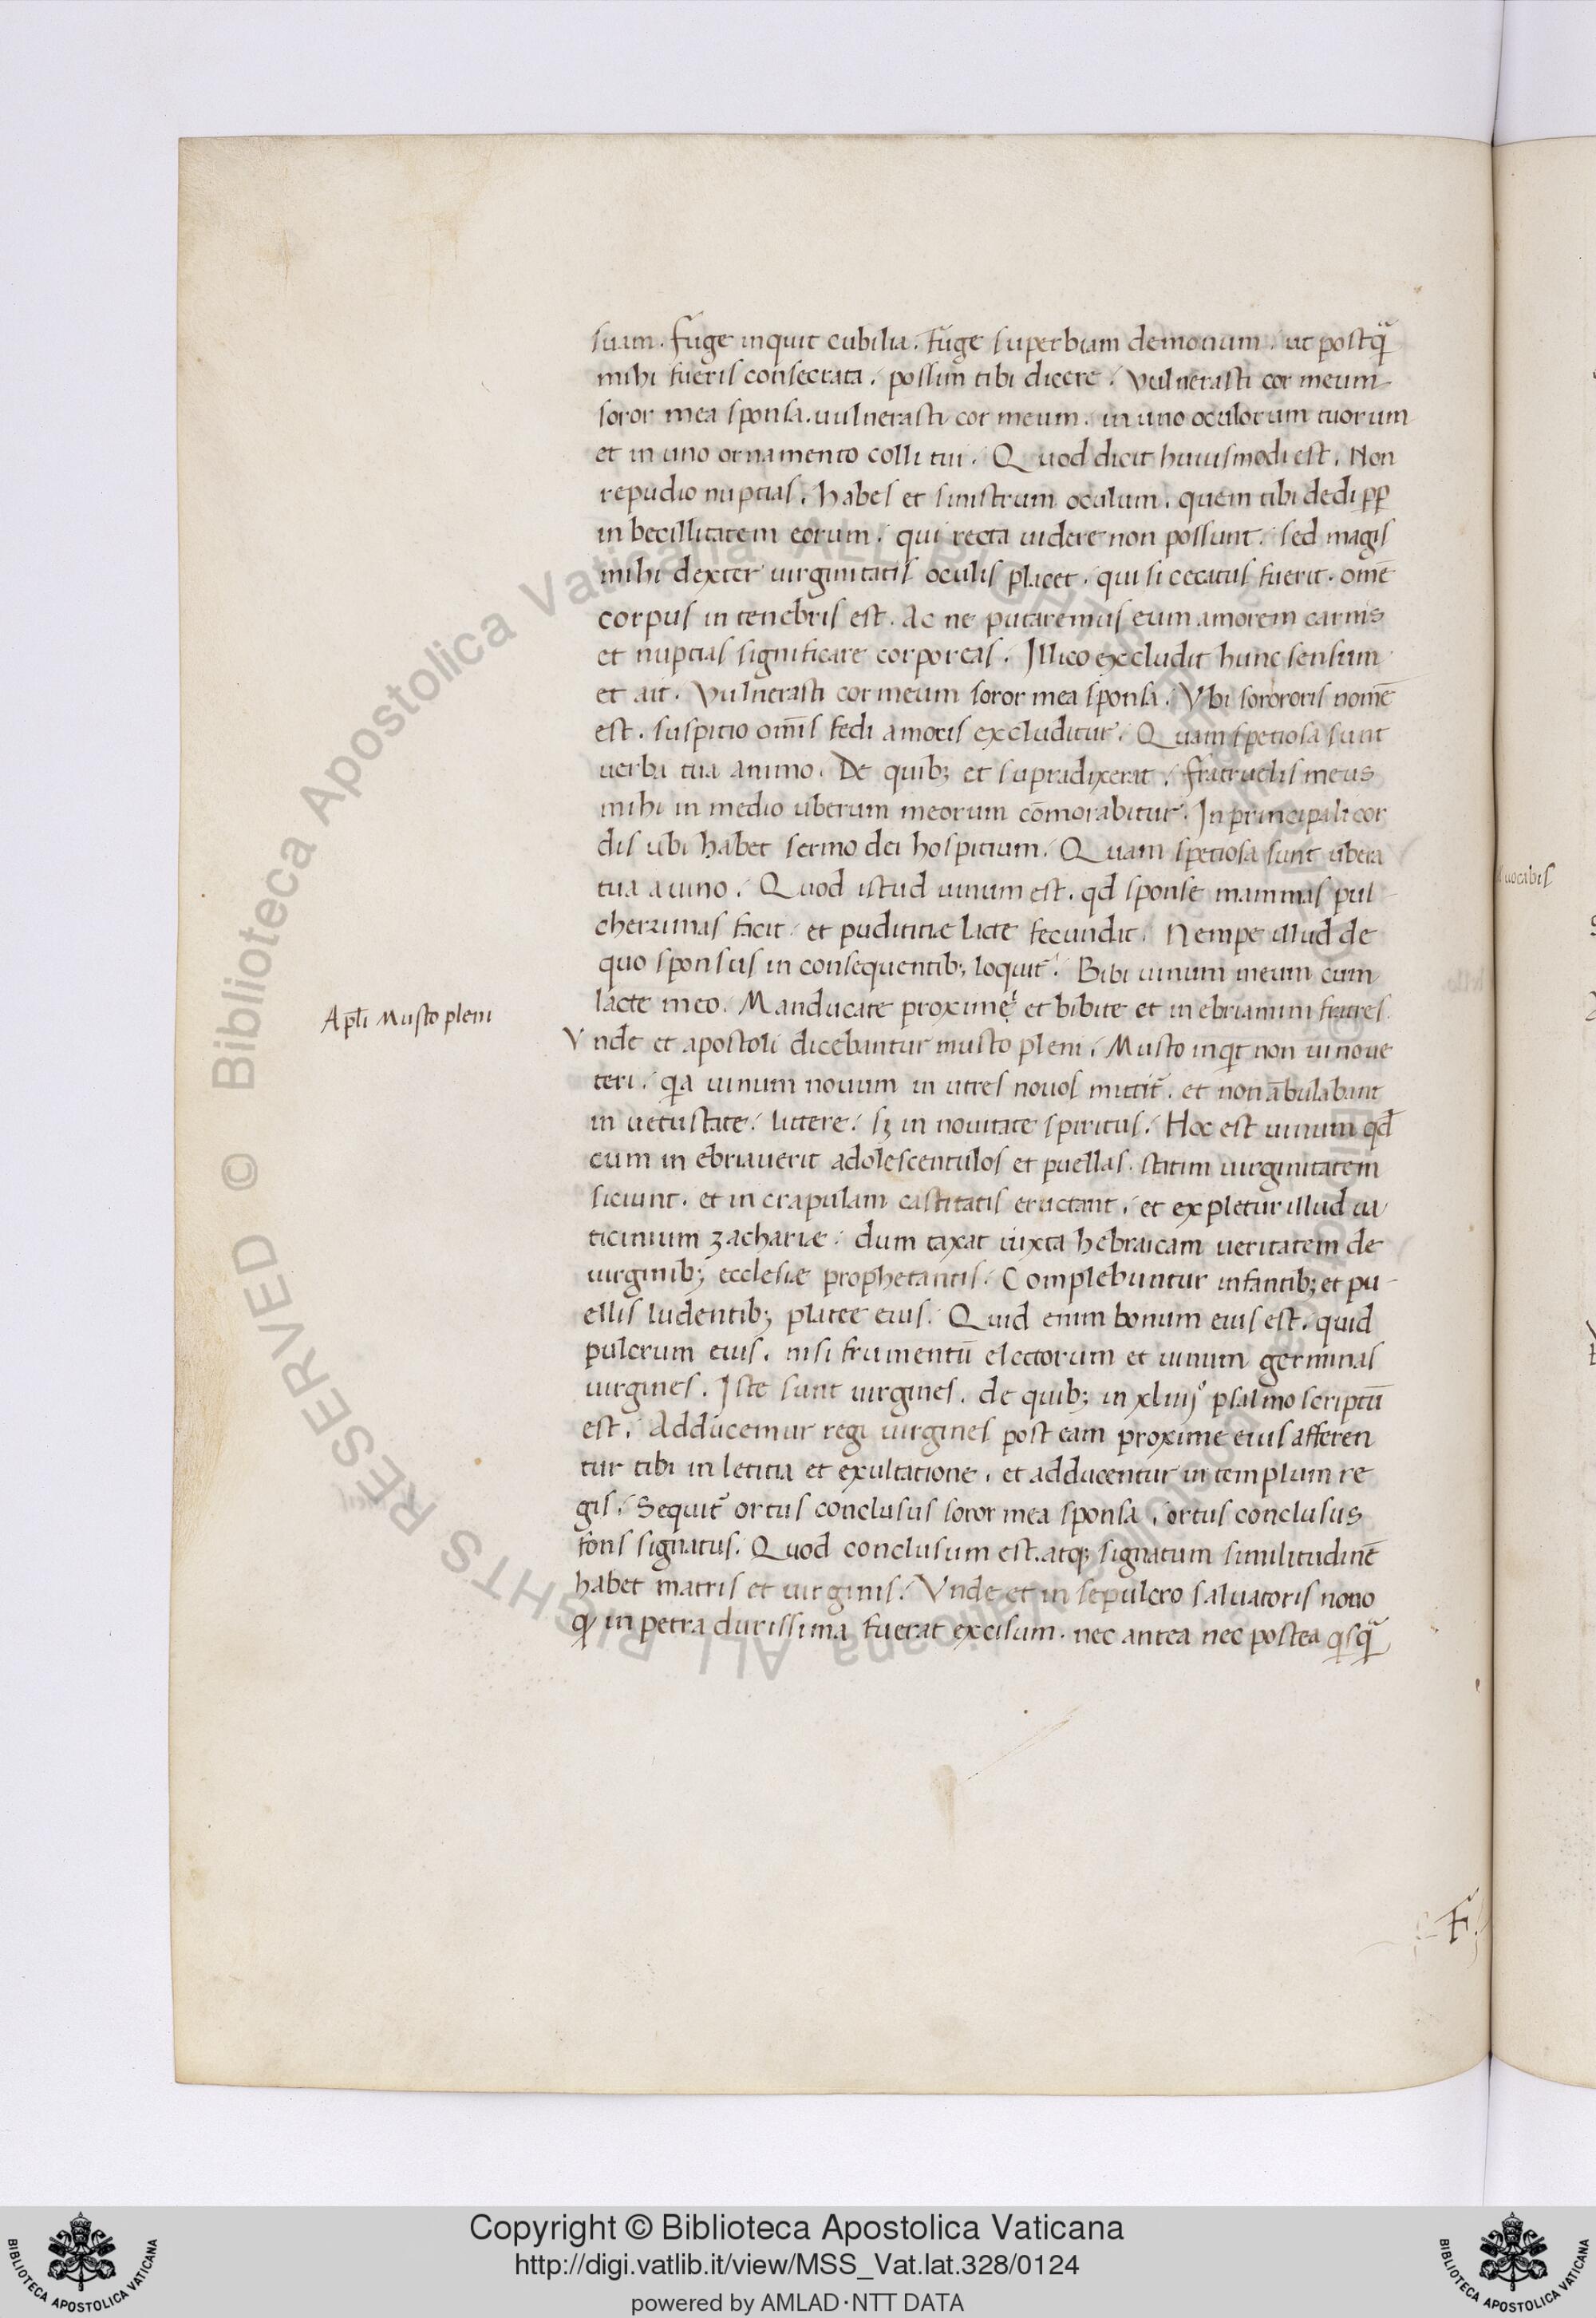 suam. fuge inquit cubilia. Fuge superbiam demonum. ut postq̃
mihi fueris consecrata. possim tibi dicere. Vulnerasti cor meum
soror mea sponsa. uulnerasti cor meum. in uno oculorum tuorum
et in uno ornamento colli tui. Quod dicit huiusmodi est. Non
repudio nuptias. habes et sinistrum oculum. quem tibi dedi pp̄
in becillitatem eorum. qui recta uidere non possunt. sed magis
mihi dexter uirginitatis oculis placet. qui si cecatus fuerit. omē
corpus in tenebris est. Ac ne putaremus eum amorem carnis
et nuptias significare corporeas. Illico excludit hunc sensum
et ait. Vulnerasti cor meum soror mea sponsa. Vbi sorororis nomē
est. suspitio om̄is fedi amoris excluditur. Quam spetiosa sunt
uerba tua animo. De quib; et supradixerat. fratruelis meus
mihi in medio uberum meorum cōmorabitur. In principali cor
dis ubi habet sermo dei hospitium. Quam spetiosa sunt ubera
tua a uino. Quod istud uinum est. qd sponse mammas pul-
cherrimas facit. et pudititiæ lacte fecundat. Nempe illud de
quo sponsus in consequentib; loquit̃. Bibi uinum meum cum
lacte meo. Manducate proximę et bibite et in ebriamini fratres.
Apl̄i Musto pleni
Vnde et apostoli dicebantur musto pleni. Musto inqt non uino ue
teri. qa uinum nouum in utres nouos mittit̃. et non ābulabant
in uetustate. littere. sꝫ in nouitate spiritus. Hoc est uinum qd̄
cum in ebriauerit adolescentulos et puellas. statim uirginitatem
siciunt. et in crapulam castitatis eructant. et expletur illud ua
ticinium zachariæ. dum taxat iuxta hebraicam ueritatem de
uirginib; ecclesiæ prophetantis. Complebuntur infantib; et pu-
ellis ludentib; platee eius. Quid enim bonum eius est. quid
pulcrum eius. nisi frumentū electorum et uinum germinas
uirgines. Iste sunt uirgines. de quib; in xliiijº psalmo scriptū
est. Adducemur regi uirgines post eam proxime eius afferen
tur tibi in letitia et exultatione. et adducentur in templum re
gis. Sequit̃ ortus conclusus soror mea sponsa. ortus conclusus
fons signatus. Quod conclusum est. atq; signatum similitudinē
habet matris et uirginis. Vnde et in sepulcro saluatoris nouo
qđ in petra durissima fuerat excisum. nec antea nec postea qsq̃
F
uocabis
© Biblioteca Apostolica Vaticana ALL RIGHTS RESERVED
Copyright © Biblioteca Apostolica Vaticana
http://digi.vatlib.it/view/MSS_Vat.lat.328/0124
powered by AMLAD·NTT DATA
BIBLIOTECA APOSTOLICA VATICANA
BIBLIOTECA APOSTOLICA VATICANA